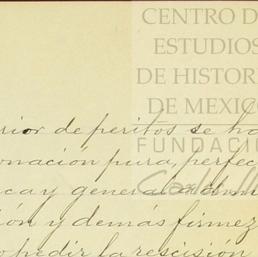 CENTRO D
ESTUDIOS
DE HISTOR
DE MEXIC
rior de peritos se ha
FUNDACI
onacion pura, perfec
ca y general
ión y demás firmez
pedir la rescisión